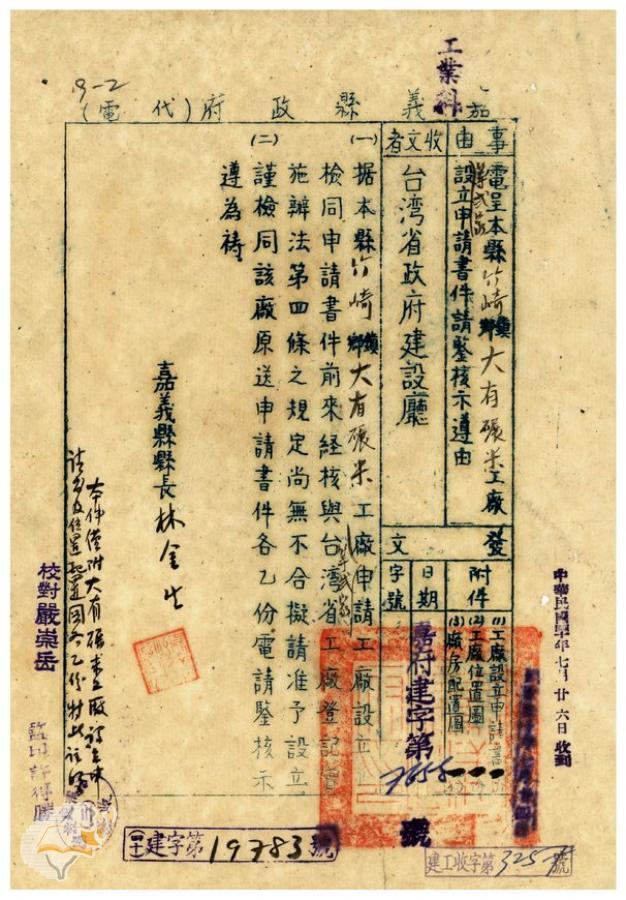 工業科
9-2
嘉義縣政府(代電)
事由
電呈本縣竹崎鄉鎮大有碾米工廠
等貳家
設立申請書件請鑒核示遵由
收文者
台湾省政府建設廳
發文
附件
(1)工廠設立申請書
(2)工廠位置圖
(3)廠房配置圖
日期
字號
嘉府建字第
號
(一)据本縣竹崎鄉鎮大有碾米工廠申請工廠設立
等貳家
檢同申請書件前來経核與台湾省工廠登記實
施辦法第四條之規定尚無不合擬請准予設立
(二)謹檢同該廠原送申請書件各乙份電請鑒核示
遵為禱
嘉義縣縣長林金生
本件僅附大有碾米工廠設立申
請書及位置配置圖各乙份特此註明
校對嚴崇岳
監印許得勝
中華民國年七月廿六日收到
建字第19783號
建工收字第325號